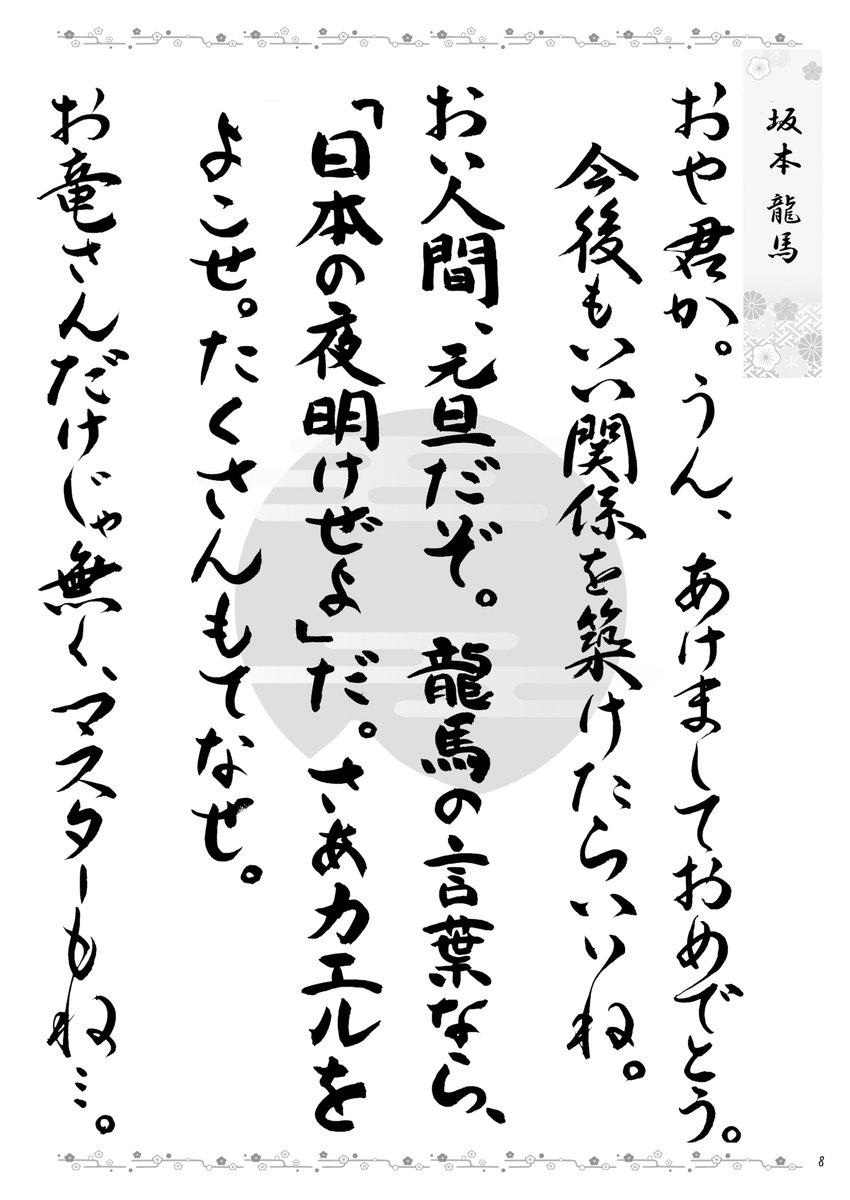 坂本 龍馬
おや君か。うん、あけましておめでとう。
今後もいい関係を築けたらいいね。
おい人間、元旦だぞ。龍馬の言葉なら、
「日本の夜明けぜよ」だ。さあカエルを
よこせ。たくさんもてなせ。
お竜さんだけじゃ無く、マスターもね…。
8